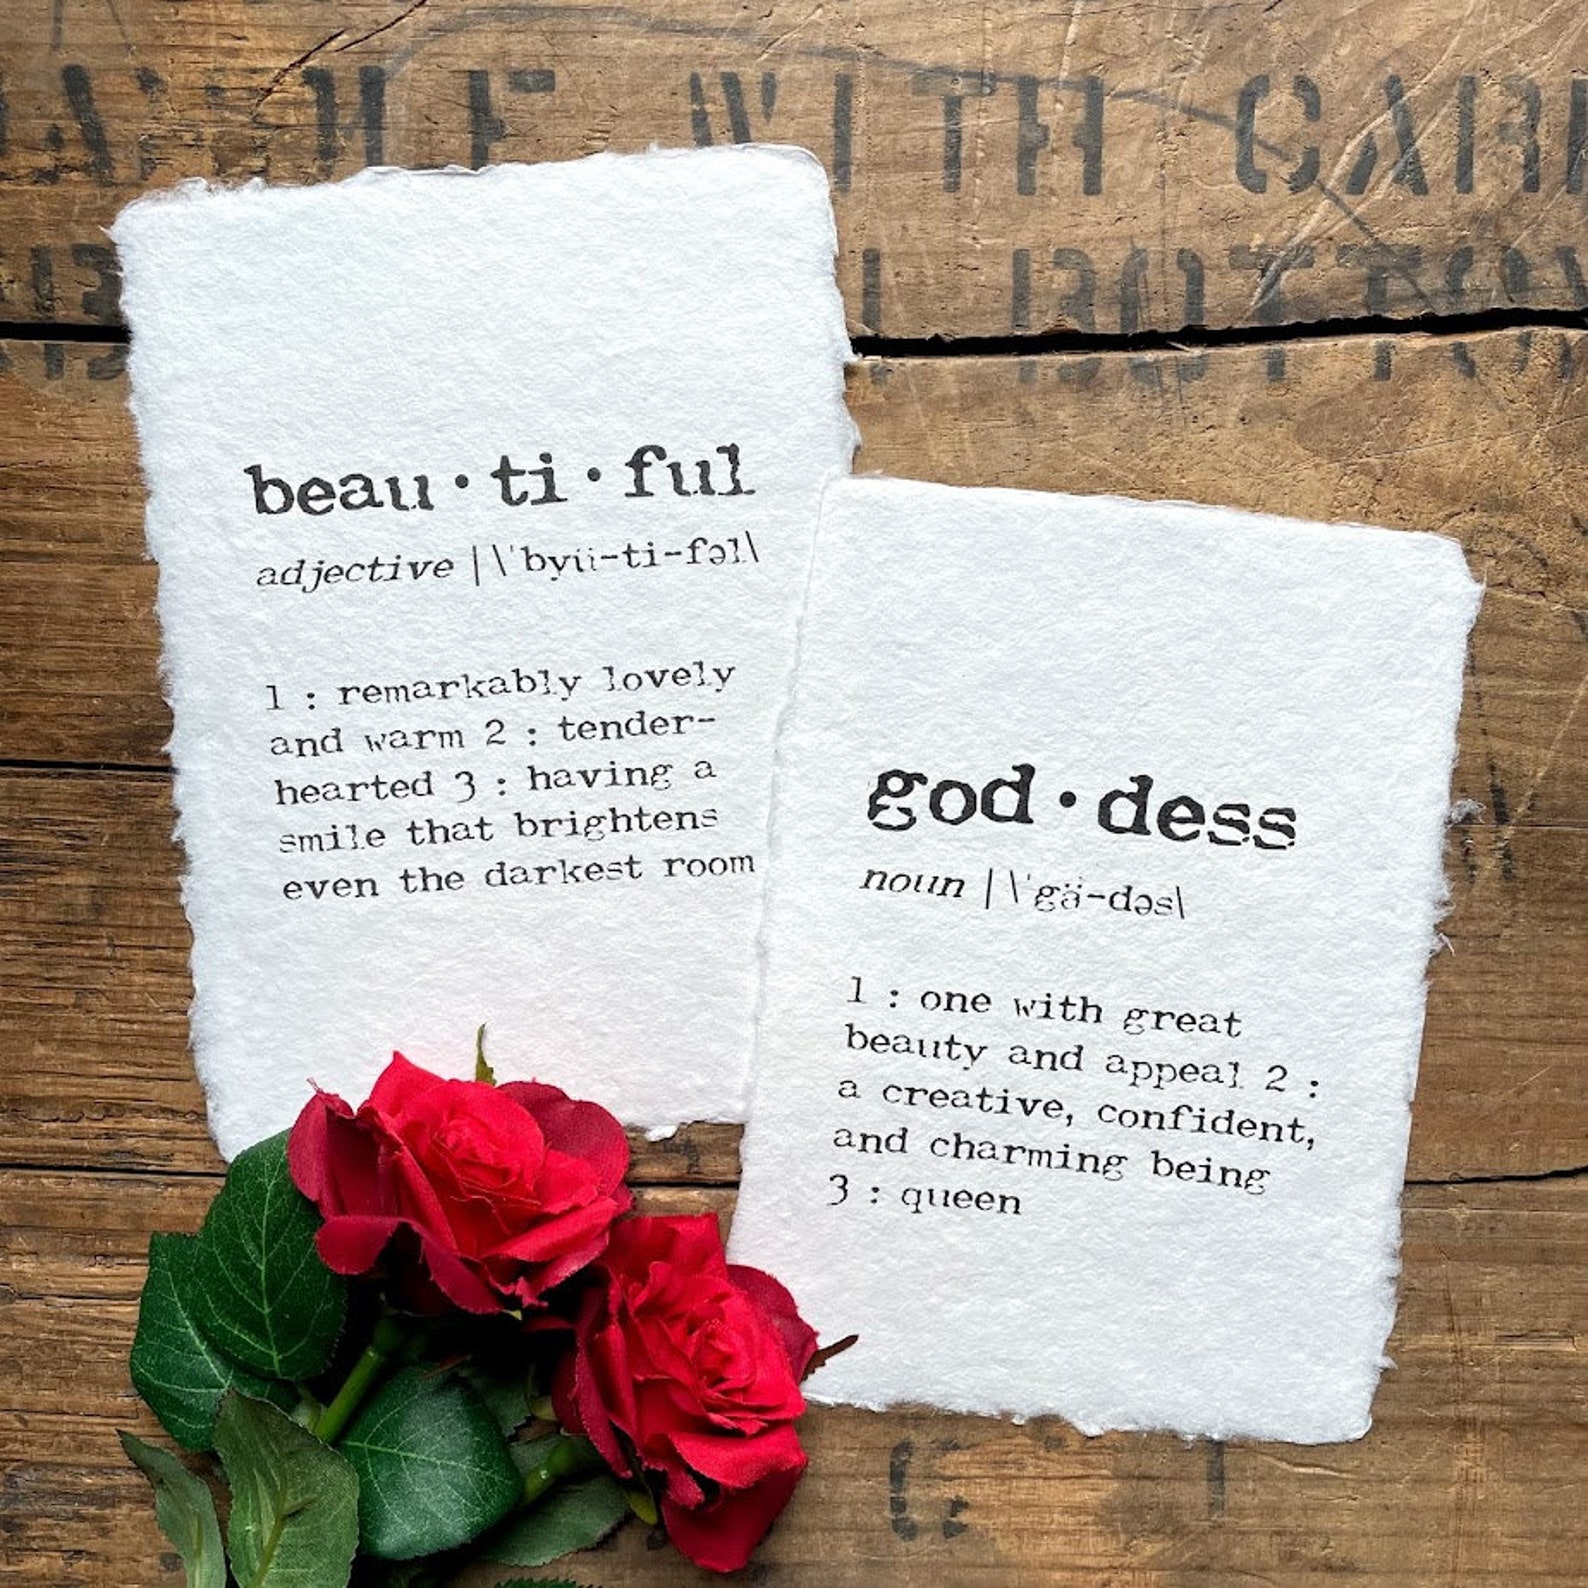 WITH CAR
BOTTO
beau·ti·ful
adjective |\ˈbyü-ti-fəl\
1 : remarkably lovely
and warm 2 : tender-
hearted 3 : having a
smile that brightens
even the darkest room
god·dess
noun |\ˈgä-dəs\
1 : one with great
beauty and appeal 2 :
a creative, confident,
and charming being
3 : queen